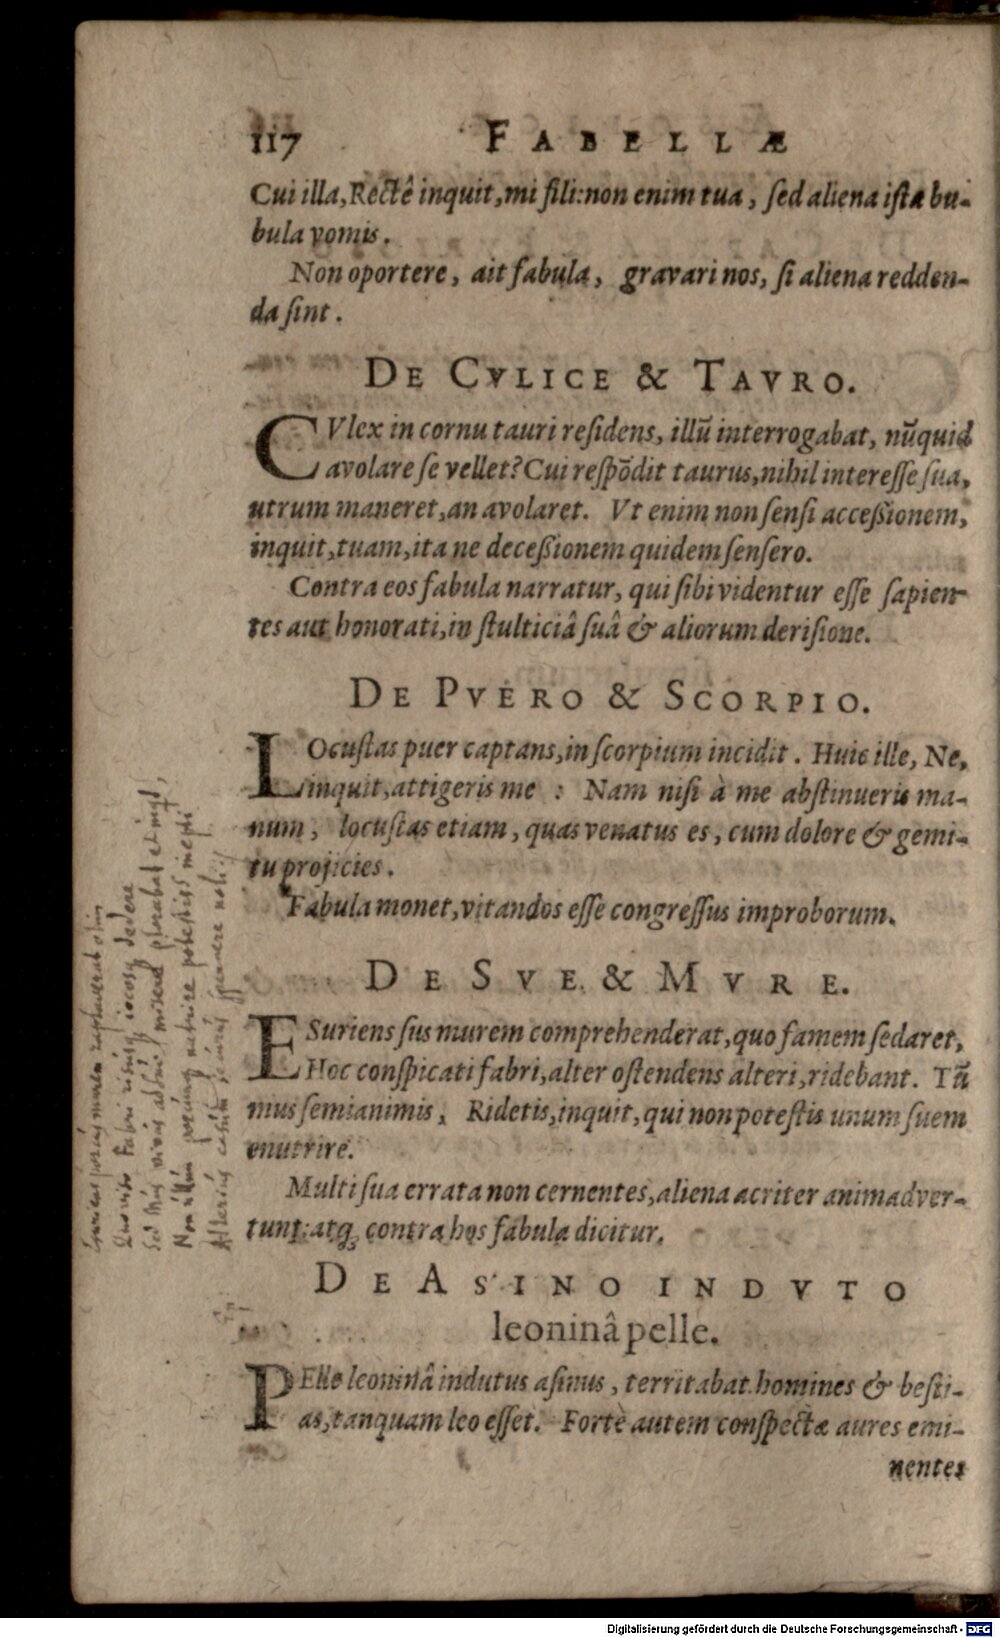 117 FABELLÆ
Cui illa, Rectê inquit, mi fili: non enim tua, sed aliena ista bu-
bula vomis.
Non oportere, ait fabula, gravari nos, si aliena redden-
da sint.
DE CVLICE & TAVRO.
CVlex in cornu tauri residens, illũ interrogabat, nũquid
avolare se vellet? Cui respõdit taurus, nihil interesse sua,
utrum maneret, an avolaret. Vt enim non sensi accessionem,
inquit, tuam, ita ne decessionem quidem sensero.
Contra eos fabula narratur, qui sibi videntur esse sapien-
tes aut honorati, in stulticiâ suâ & aliorum derisione.
DE PVERO & SCORPIO.
LOcustas puer captans, in scorpium incidit. Huic ille, Ne,
inquit, attigeris me : Nam nisi à me abstinueris ma-
num, locustas etiam, quas venatus es, cum dolore & gemi-
tu projicies.
Fabula monet, vitandos esse congressus improborum.
DE SVE & MVRE.
ESuriens sus murem comprehenderat, quo famem sedaret,
Hoc conspicati fabri, alter ostendens alteri, ridebant. Tũ
mus semianimis, Ridetis, inquit, qui non potestis unum suem
enutrire.
Multi sua errata non cernentes, aliena acriter animadver-
tunt: atq; contra hos fabula dicitur.
DE ASINO INDVTO
leoninâ pelle.
PElle leoninâ indutus asinus, territabat homines & besti-
as, tanquam leo esset. Fortè autem conspectæ aures emi-
nentes
Quo viso Fabri
Digitalisierung gefördert durch die Deutsche Forschungsgemeinschaft - DFG